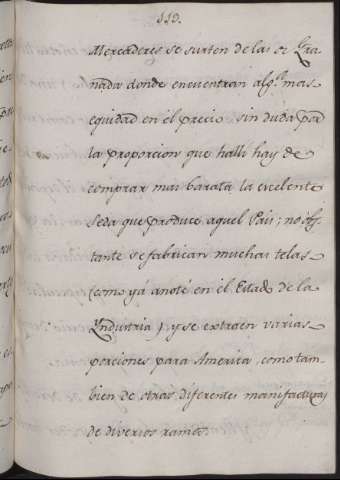 119.
Mercaderes se surten de las de Gra
nada donde encuentran alg.ª mas
equidad en el precio sin duda por
la proporcion que halli hay de
comprar mas barata la excelente
seda que produce aquel Pais; no obs
tante se fabrican muchas telas
(como yá anoté en el Estado de la
Yndustria) y se extraen varias
porciones para America, como tam
bien de otras diferentes manifacturas
de diversos ramos.